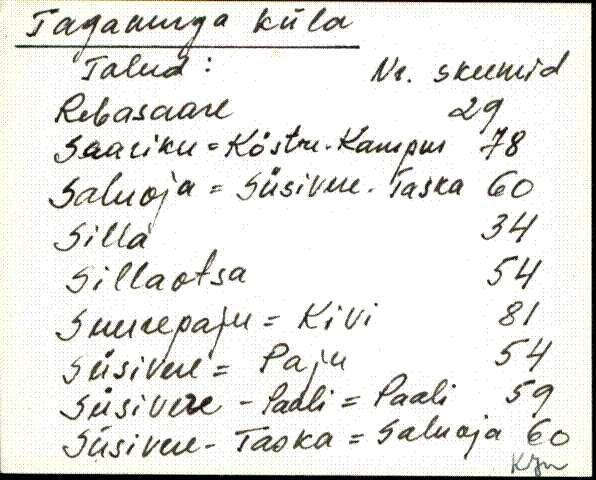 Taganurga küla
Talud: Nr. skeemid
Rebasaare 29
Saariku = Köstre-Kampus 78
Saluoja = Süsivere-Taska 60
Silla 34
Sillaotsa 54
Suurepaju = Kivi 81
Süsivere = Paju 54
Süsivere - Paali = Paali 59
Süsivere - Taska = Saluoja 60